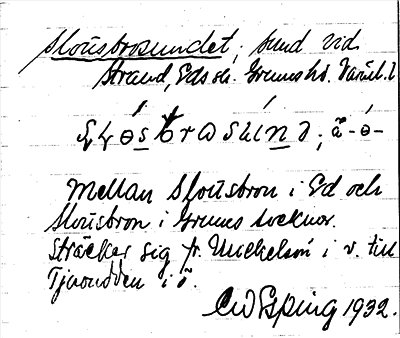 Slottsbrosundet, sund vid
Strand, Eds sn. Grums hd. Värml. l

Mellan Slottsbron i Ed och
Slottsbron i Grums socknar.
Sträcker sig fr. Mickelsön i v. till
Tjuvudden i ö.
CWEsping 1932.